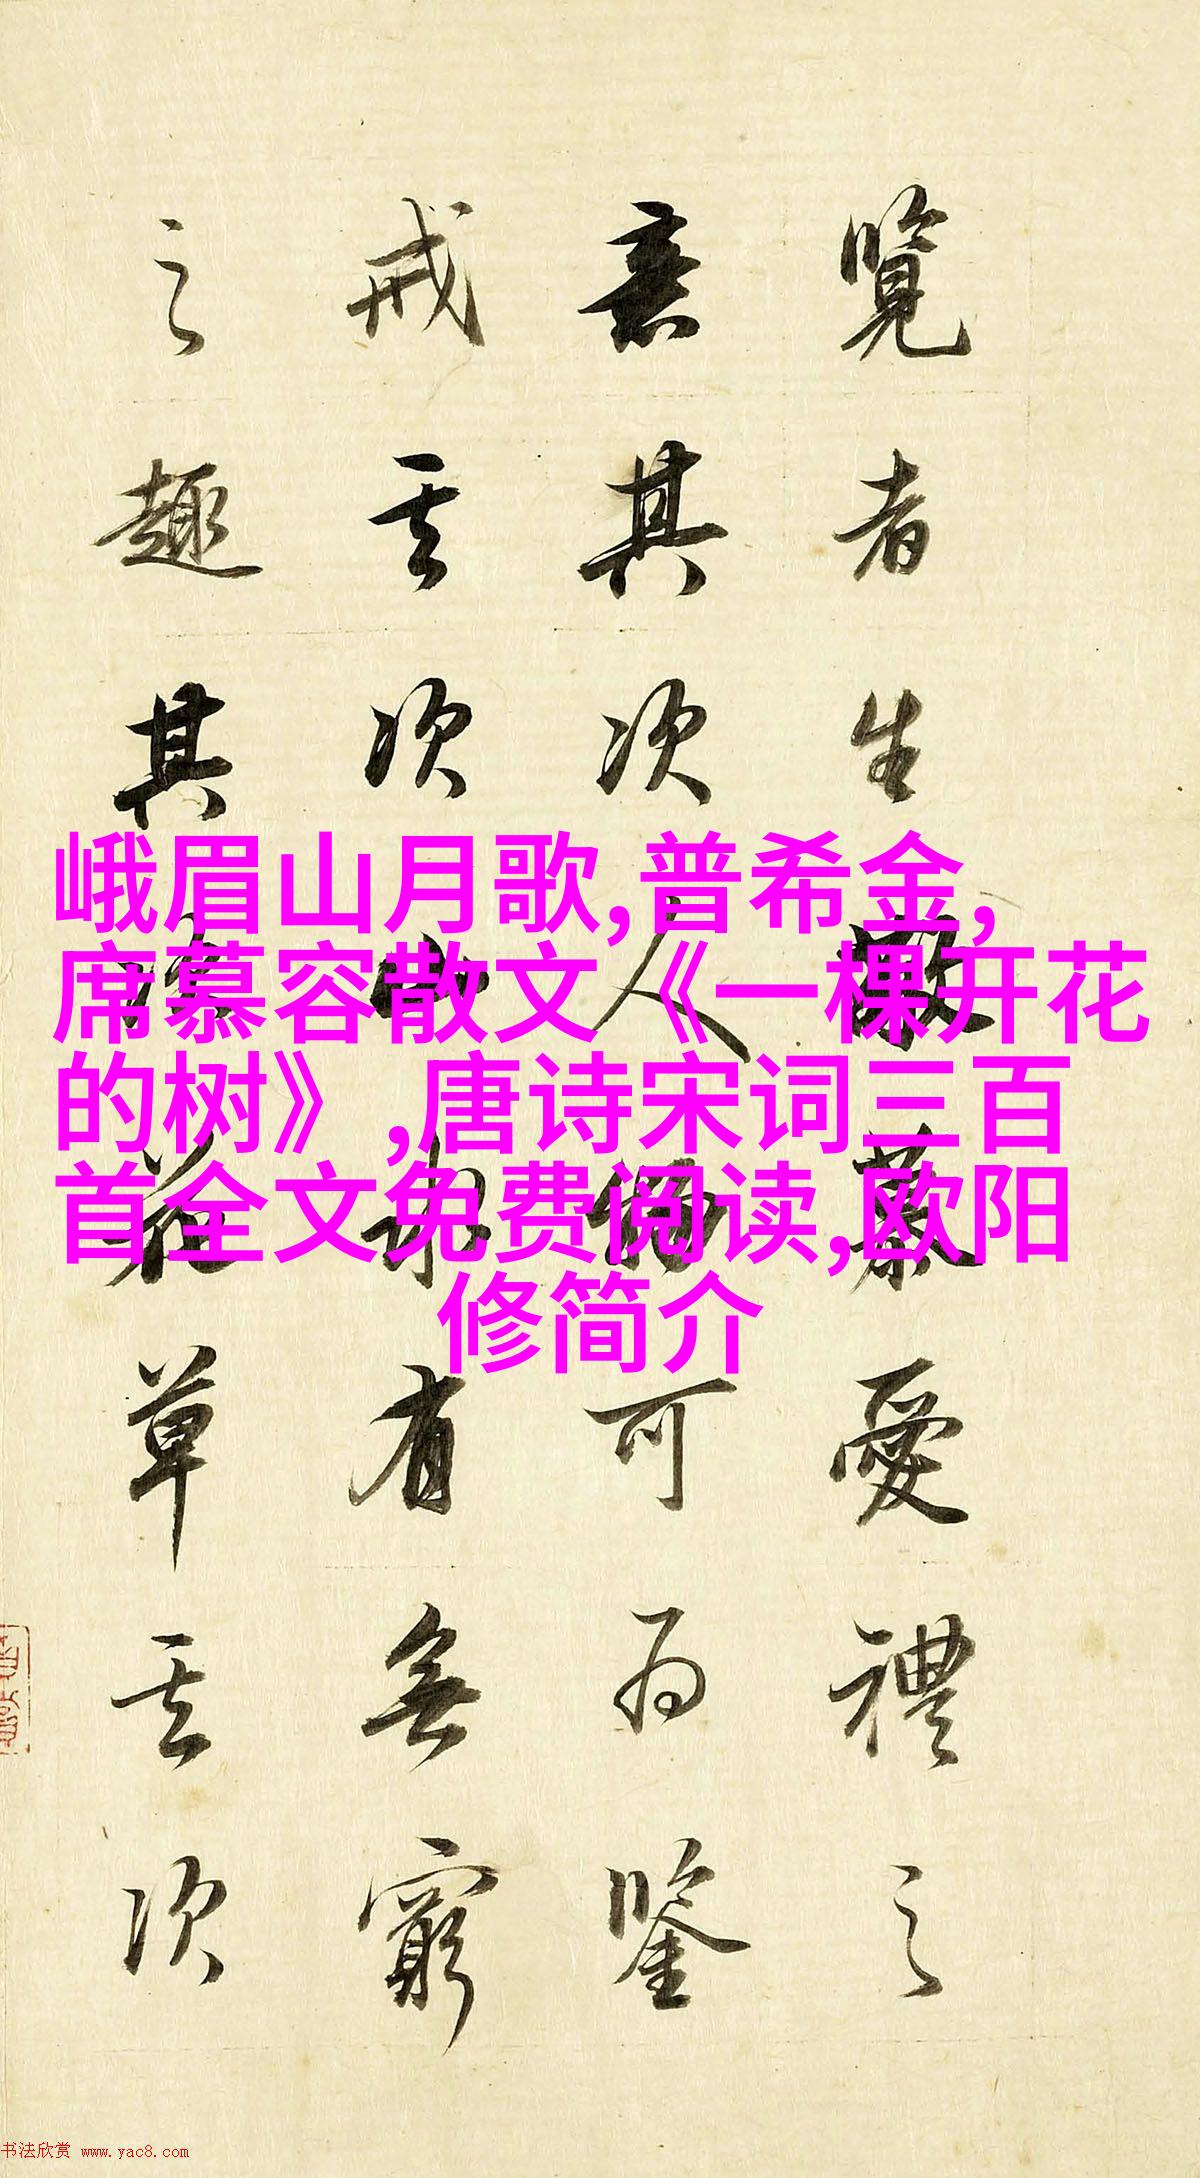 覽者生慕愛禮之
意其次人物可为鑒
戒其次山水有無窮
之趣其次花草其次
峨眉山月歌,普希金,
席慕容散文《一棵开花
的树》,唐诗宋词三百
首全文免费阅读,欧阳
修简介
书法欣赏 www.yac8.com